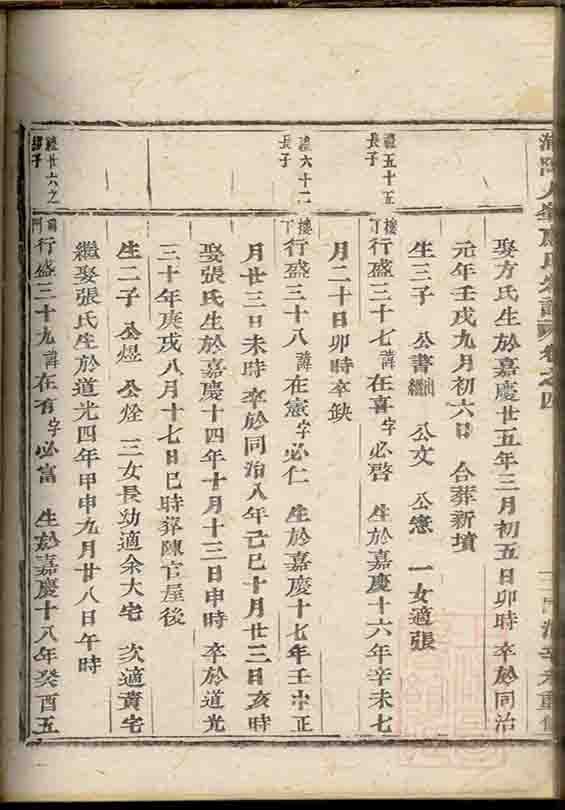 娶方氏生於嘉慶廿五年三月初五日卯時 卒於同治
元年壬戌九月初六日 合葬新墳
生三子 公書 公文 公憲 一女適張
禮五十五
長子
樓
丁
行盛三十七諱在喜字必啓 生於嘉慶十六年辛未七
月二十日卯時卒缺
禮六十二
長子
樓
丁
行盛三十八諱在憲字必仁 生於嘉慶十七年壬申正
月廿三日未時 卒於同治八年己巳十月廿三日亥時
娶張氏生於嘉慶十四年十月十三日申時 卒於道光
三十年庚戌八月十七日巳時葬陳官屋後
生二子 公煜 公烇 三女長幼適余大宅 次適黃宅
繼娶張氏生於道光四年甲申九月廿八日午時
禮廿六之
子
前
門
行盛三十九諱在有字必富 生於嘉慶十八年癸酉五